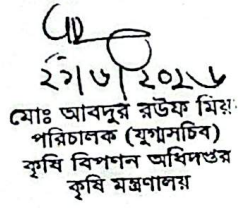 মোঃ আবদুর রউফ মিয়া
পরিচালক (যুগ্মসচিব)
কৃষি বিপণন অধিদপ্তর
কৃষি মন্ত্রণালয়